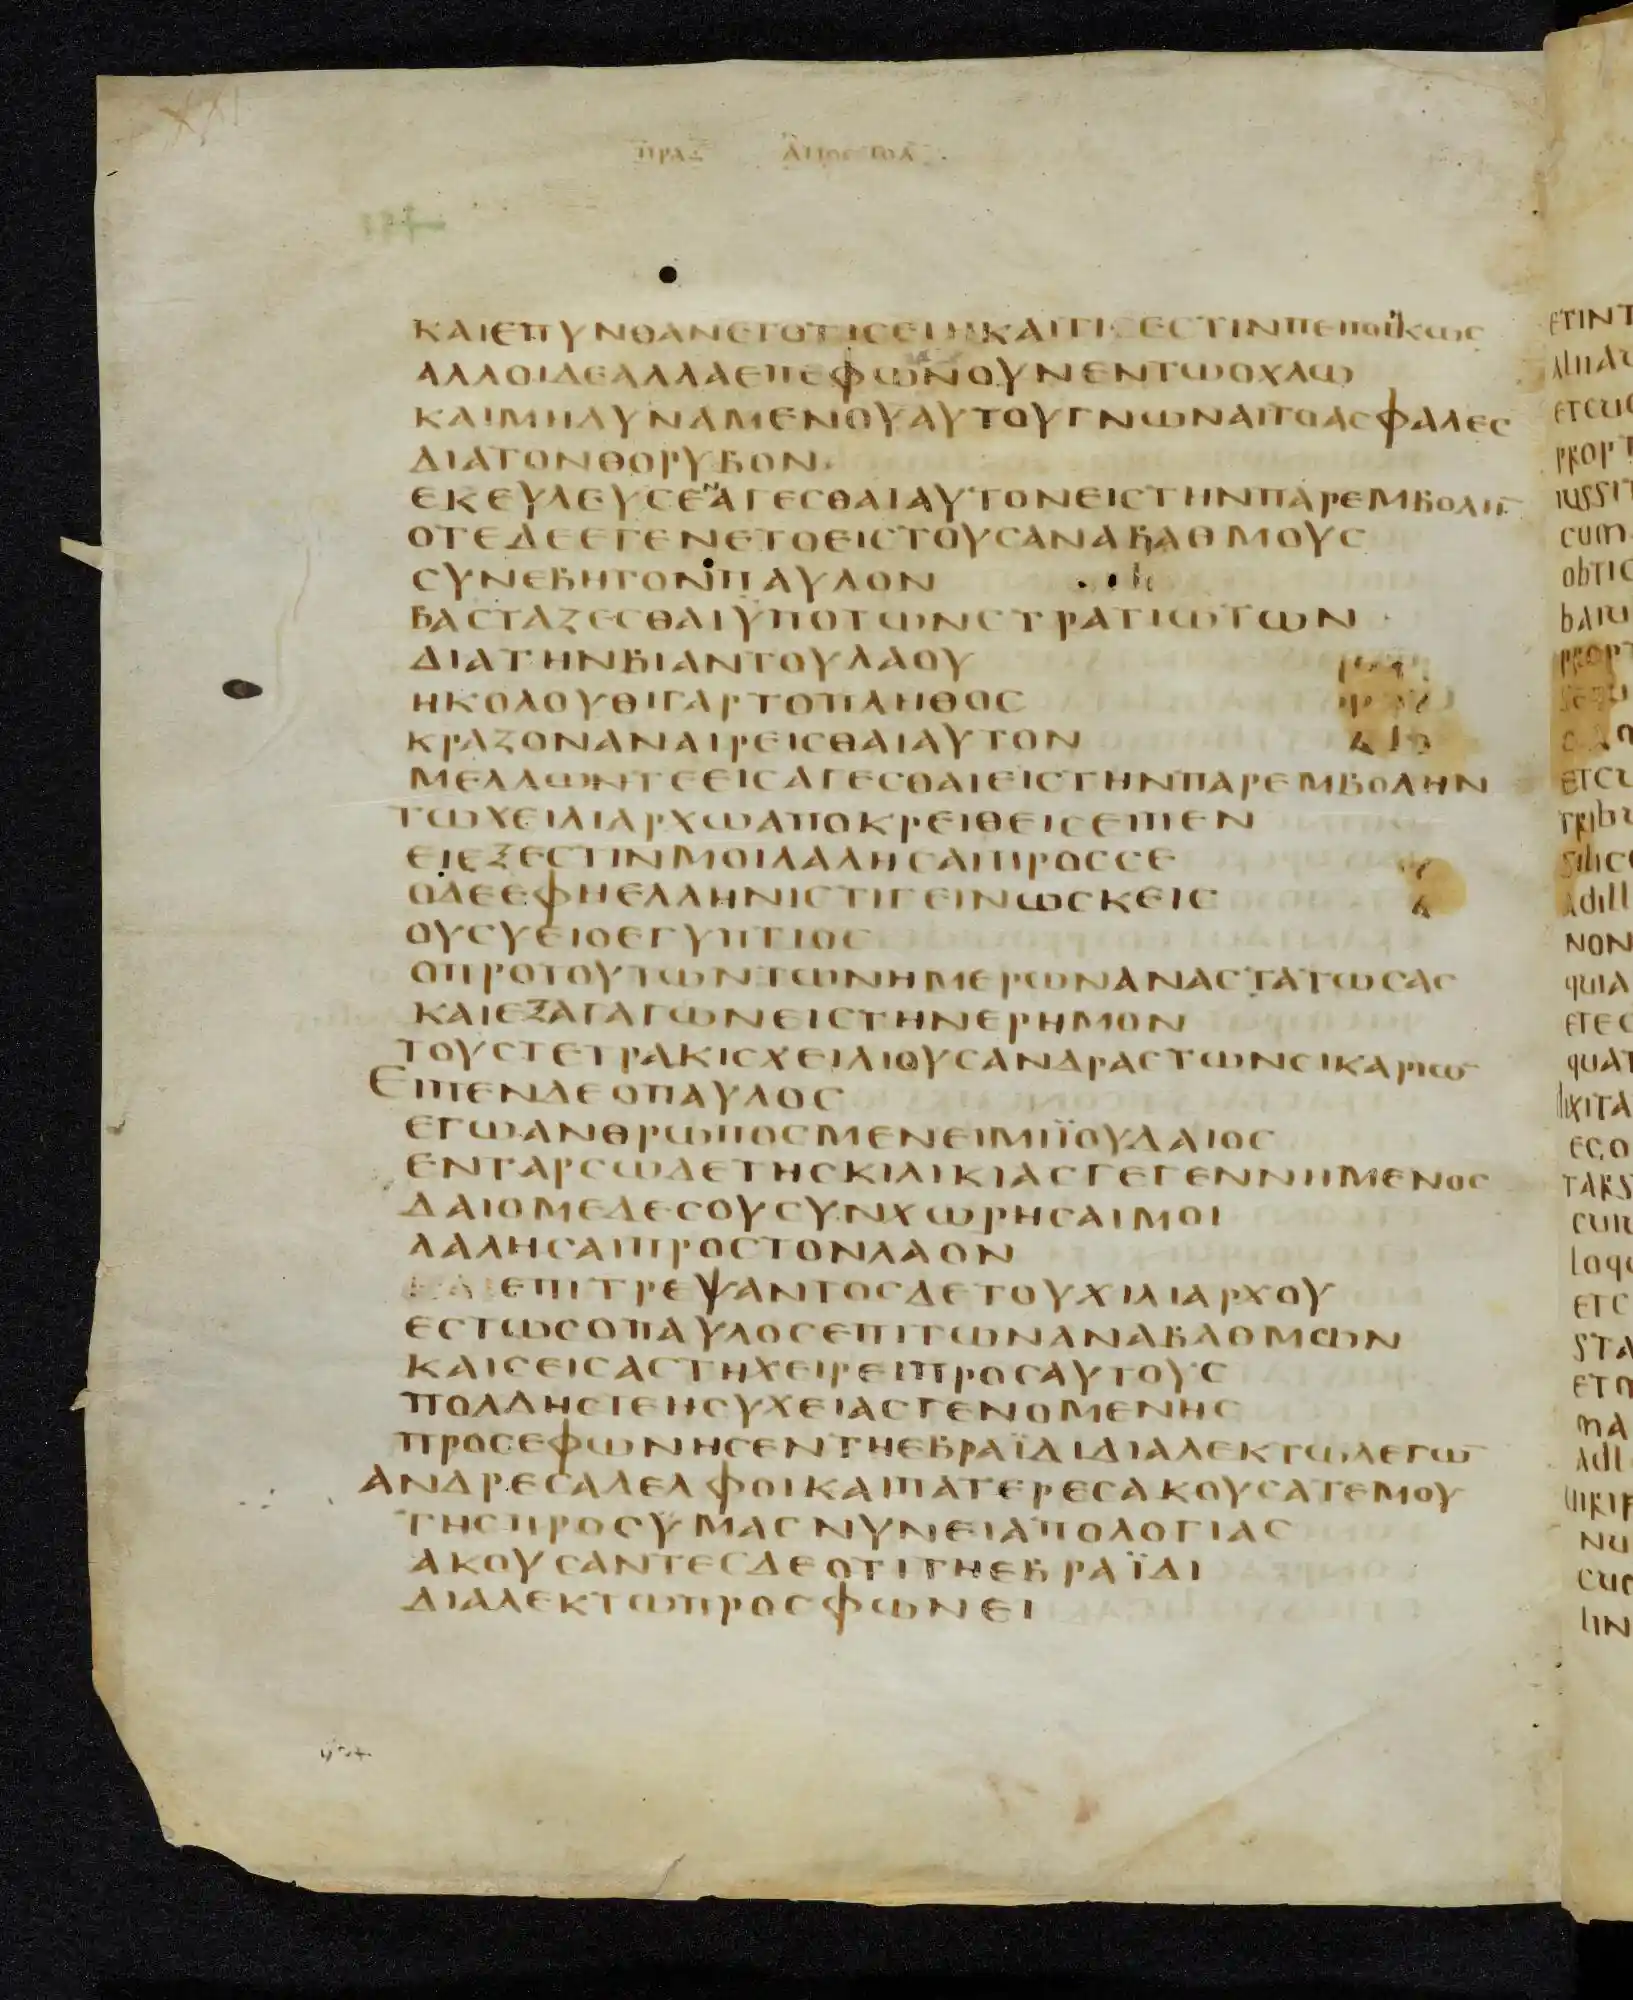 XXI
ΠΡΑΞ ΑΠΟϹΤΟΛ
ΚΑΙΕΠΥΝΘΑΝΕΤΟΤΙϹΕΙΗΚΑΙΤΙϹΕϹΤΙΝΠΕΠΟΙΚΩϹ
ΑΛΛΟΙΔΕΑΛΛΑΕΠΕΦΩΝΟΥΝΕΝΤΩΟΧΛΩ
ΚΑΙΜΗΔΥΝΑΜΕΝΟΥΑΥΤΟΥΓΝΩΝΑΙΤΟΑϹΦΑΛΕϹ
ΔΙΑΤΟΝΘΟΡΥΒΟΝ
ΕΚΕΥΛΕΥϹΕΝΑΓΕϹΘΑΙΑΥΤΟΝΕΙϹΤΗΝΠΑΡΕΜΒΟΛΗ̅
ΟΤΕΔΕΕΓΕΝΕΤΟΕΙϹΤΟΥϹΑΝΑΒΑΘΜΟΥϹ
ϹΥΝΕΒΗΤΟΝΠΑΥΛΟΝ
ΒΑϹΤΑΖΕϹΘΑΙΫΠΟΤΩΝϹΤΡΑΤΙΩΤΩΝ
ΔΙΑΤΗΝΒΙΑΝΤΟΥΛΑΟΥ
ΗΚΟΛΟΥΘΙΓΑΡΤΟΠΛΗΘΟϹ
ΚΡΑΖΟΝΑΝΑΙΡΕΙϹΘΑΙΑΥΤΟΝ
ΜΕΛΛΩΝΤΕΕΙϹΑΓΕϹΘΑΙΕΙϹΤΗΝΠΑΡΕΜΒΟΛΗΝ
ΤΩΧΕΙΛΙΑΡΧΩΑΠΟΚΡΕΙΘΕΙϹΕΙΠΕΝ
ΕΙΕΞΕϹΤΙΝΜΟΙΛΑΛΗϹΑΙΠΡΟϹϹΕ
ΟΔΕΕΦΗΕΛΛΗΝΙϹΤΙΓΕΙΝΩϹΚΕΙϹ
ΟΥϹΥΕΙΟΕΓΥΠΤΙΟϹ
ΟΠΡΟΤΟΥΤΩΝΤΩΝΗΜΕΡΩΝΑΝΑϹΤΑΤΩϹΑϹ
ΚΑΙΕΞΑΓΑΓΩΝΕΙϹΤΗΝΕΡΗΜΟΝ
ΤΟΥϹΤΕΤΡΑΚΙϹΧΕΙΛΙΟΥϹΑΝΔΡΑϹΤΩΝϹΙΚΑΡΙΩ̅
ΕΙΠΕΝΔΕΟΠΑΥΛΟϹ
ΕΓΩΑΝΘΡΩΠΟϹΜΕΝΕΙΜΙΪΟΥΔΑΙΟϹ
ΕΝΤΑΡϹΩΔΕΤΗϹΚΙΛΙΚΙΑϹΓΕΓΕΝΝΗΜΕΝΟϹ
ΔΑΙΟΜΕΔΕϹΟΥϹΥΝΧΩΡΗϹΑΙΜΟΙ
ΛΑΛΗϹΑΙΠΡΟϹΤΟΝΛΑΟΝ
ΚΑΙΕΠΙΤΡΕΨΑΝΤΟϹΔΕΤΟΥΧΙΛΙΑΡΧΟΥ
ΕϹΤΩϹΟΠΑΥΛΟϹΕΠΙΤΩΝΑΝΑΒΑΘΜΩΝ
ΚΑΙϹΕΙϹΑϹΤΗΧΕΙΡΕΙΠΡΟϹΑΥΤΟΥϹ
ΠΟΛΛΗϹΤΕΗϹΥΧΕΙΑϹΓΕΝΟΜΕΝΗϹ
ΠΡΟϹΕΦΩΝΗϹΕΝΤΗΕΒΡΑΪΔΙΔΙΑΛΕΚΤΩΛΕΓΩ̅
ΑΝΔΡΕϹΑΔΕΛΦΟΙΚΑΙΠΑΤΕΡΕϹΑΚΟΥϹΑΤΕΜΟΥ
ΤΗϹΠΡΟϹΥΜΑϹΝΥΝΕΙΑΠΟΛΟΓΙΑϹ
ΑΚΟΥϹΑΝΤΕϹΔΕΟΤΙΤΗΕΒΡΑΪΔΙ
ΔΙΑΛΕΚΤΩΠΡΟϹΦΩΝΕΙ